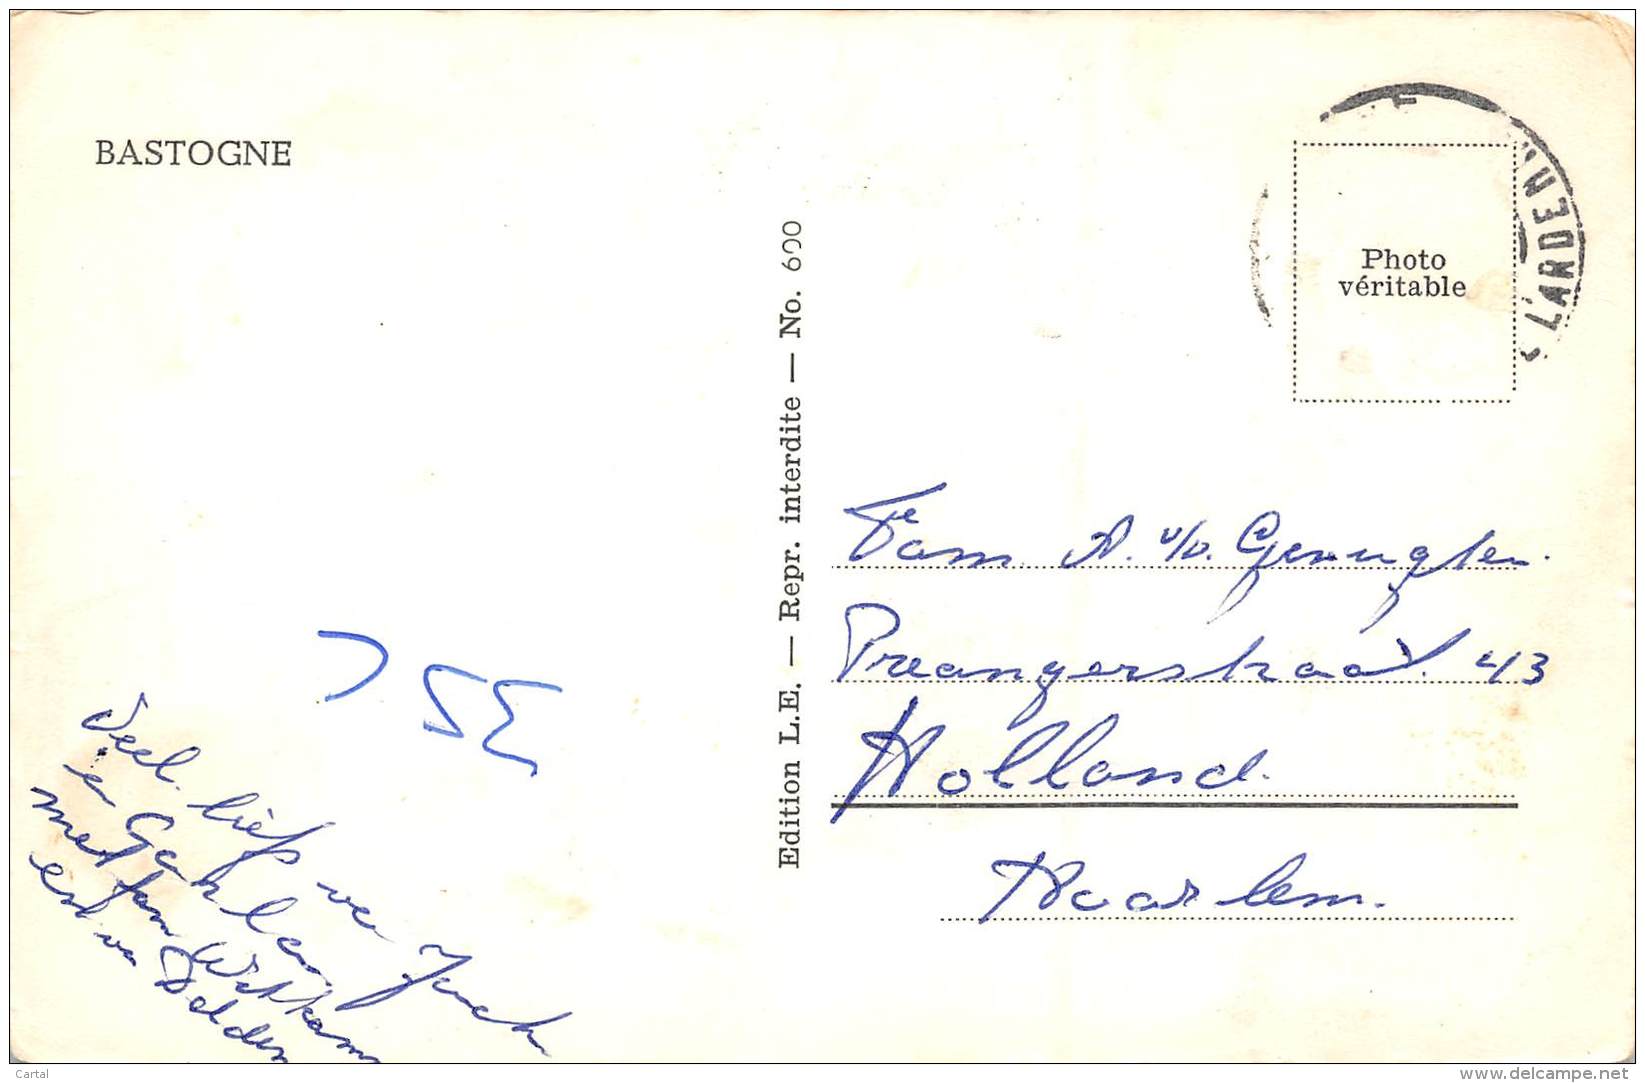 BASTOGNE
Photo
véritable
L'ARDEN
Edition L.E. — Repr. interdite — No. 600
Fam A. v/d.
Preangerstraat. 43
Holland.
Haarlem.
Veel liefs van
en
met fam
en van Delden
Cartal
www.delcampe.net